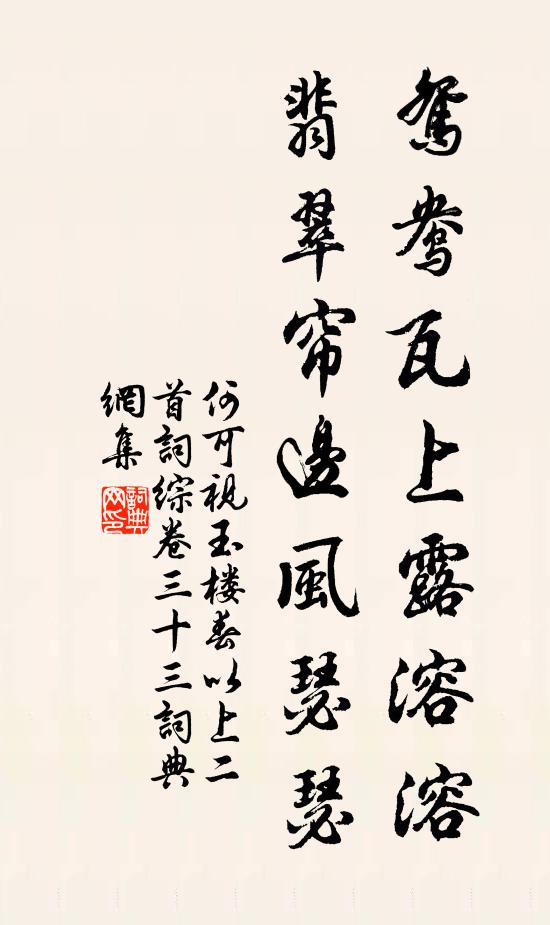 鸳鸯瓦上露溶溶
翡翠帘邊風瑟瑟
何可視玉楼春以上二
首詞綜卷三十三詞典
網集
詞典网印